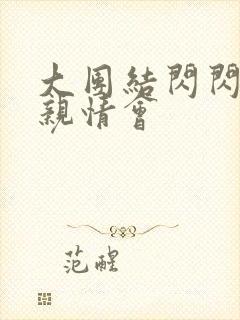 大團結閃閃
親情會
范醒